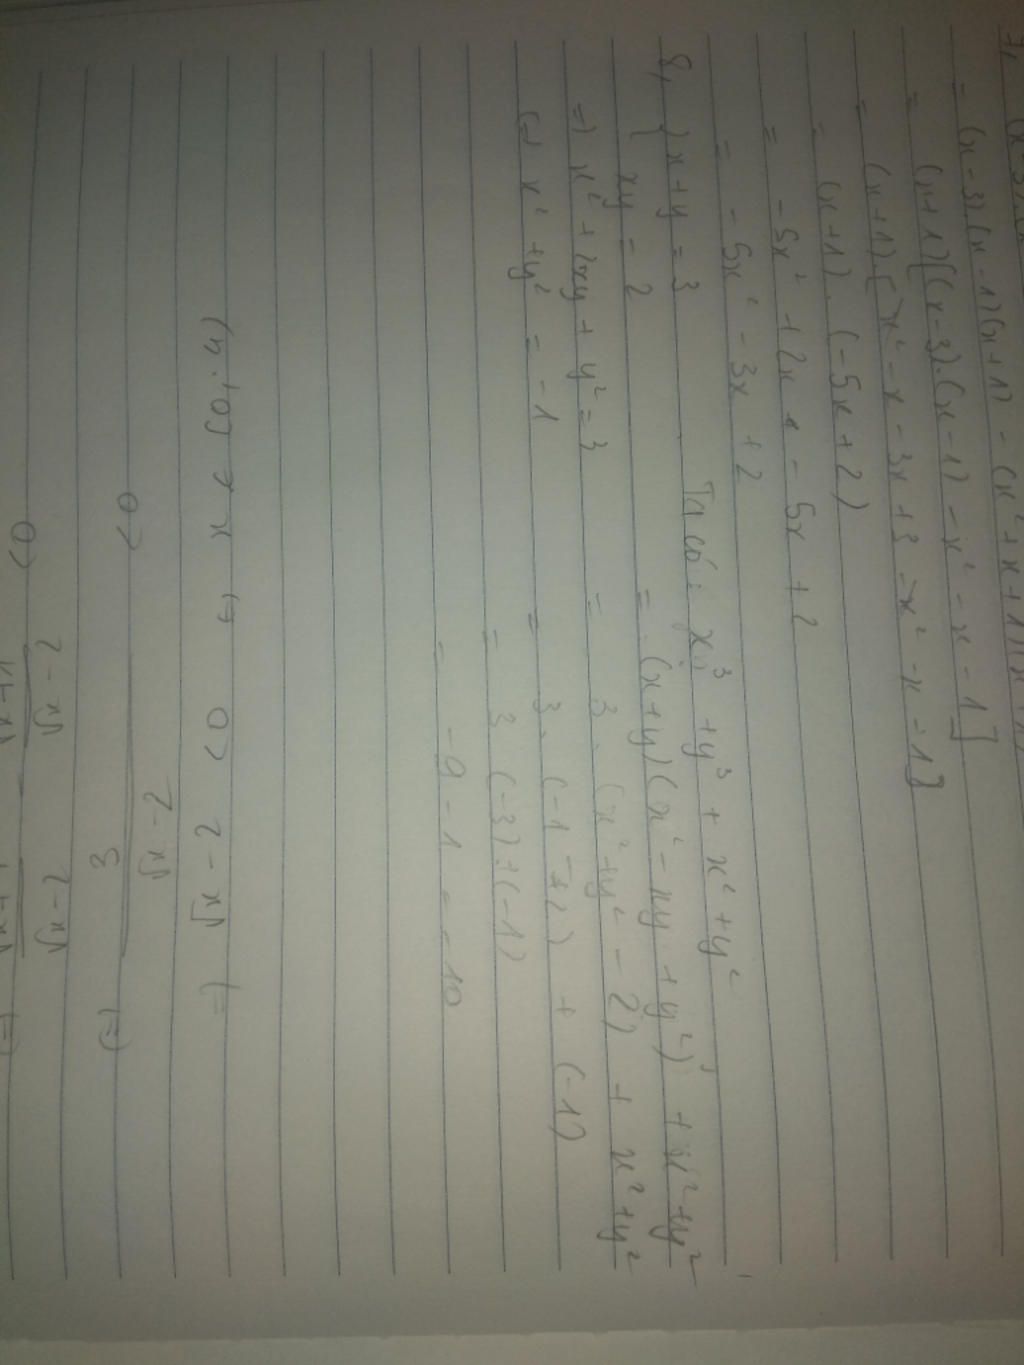 = (x-3).(x-1)(x+1) - (x² + x + 1)(x
= (x+1)[(x-3).(x-1) - x² - x - 1]
= (x+1).[x² - x - 3x + 3 - x² - x - 1]
= (x+1).(-5x+2)
= -5x² + 2x - 5x + 2
= -5x² - 3x + 2
8, { x + y = 3
xy = 2
=> x² + 2xy + y² = 3
(=) x² + y² = -1
Ta có: x³ + y³ + x² + y²
= (x+y)(x² - xy + y²) + x² + y²
= 3. (x² + y² - 2) + x² + y²
= 3. (-1 - 2) + (-1)
= 3 (-3) + (-1)
= -9 - 1 = -10
(=) √x - 2 √x - 2 < 0
(=) 3 / √x - 2 < 0
=) √x - 2 < 0 (=) x ∈ (0; 4)